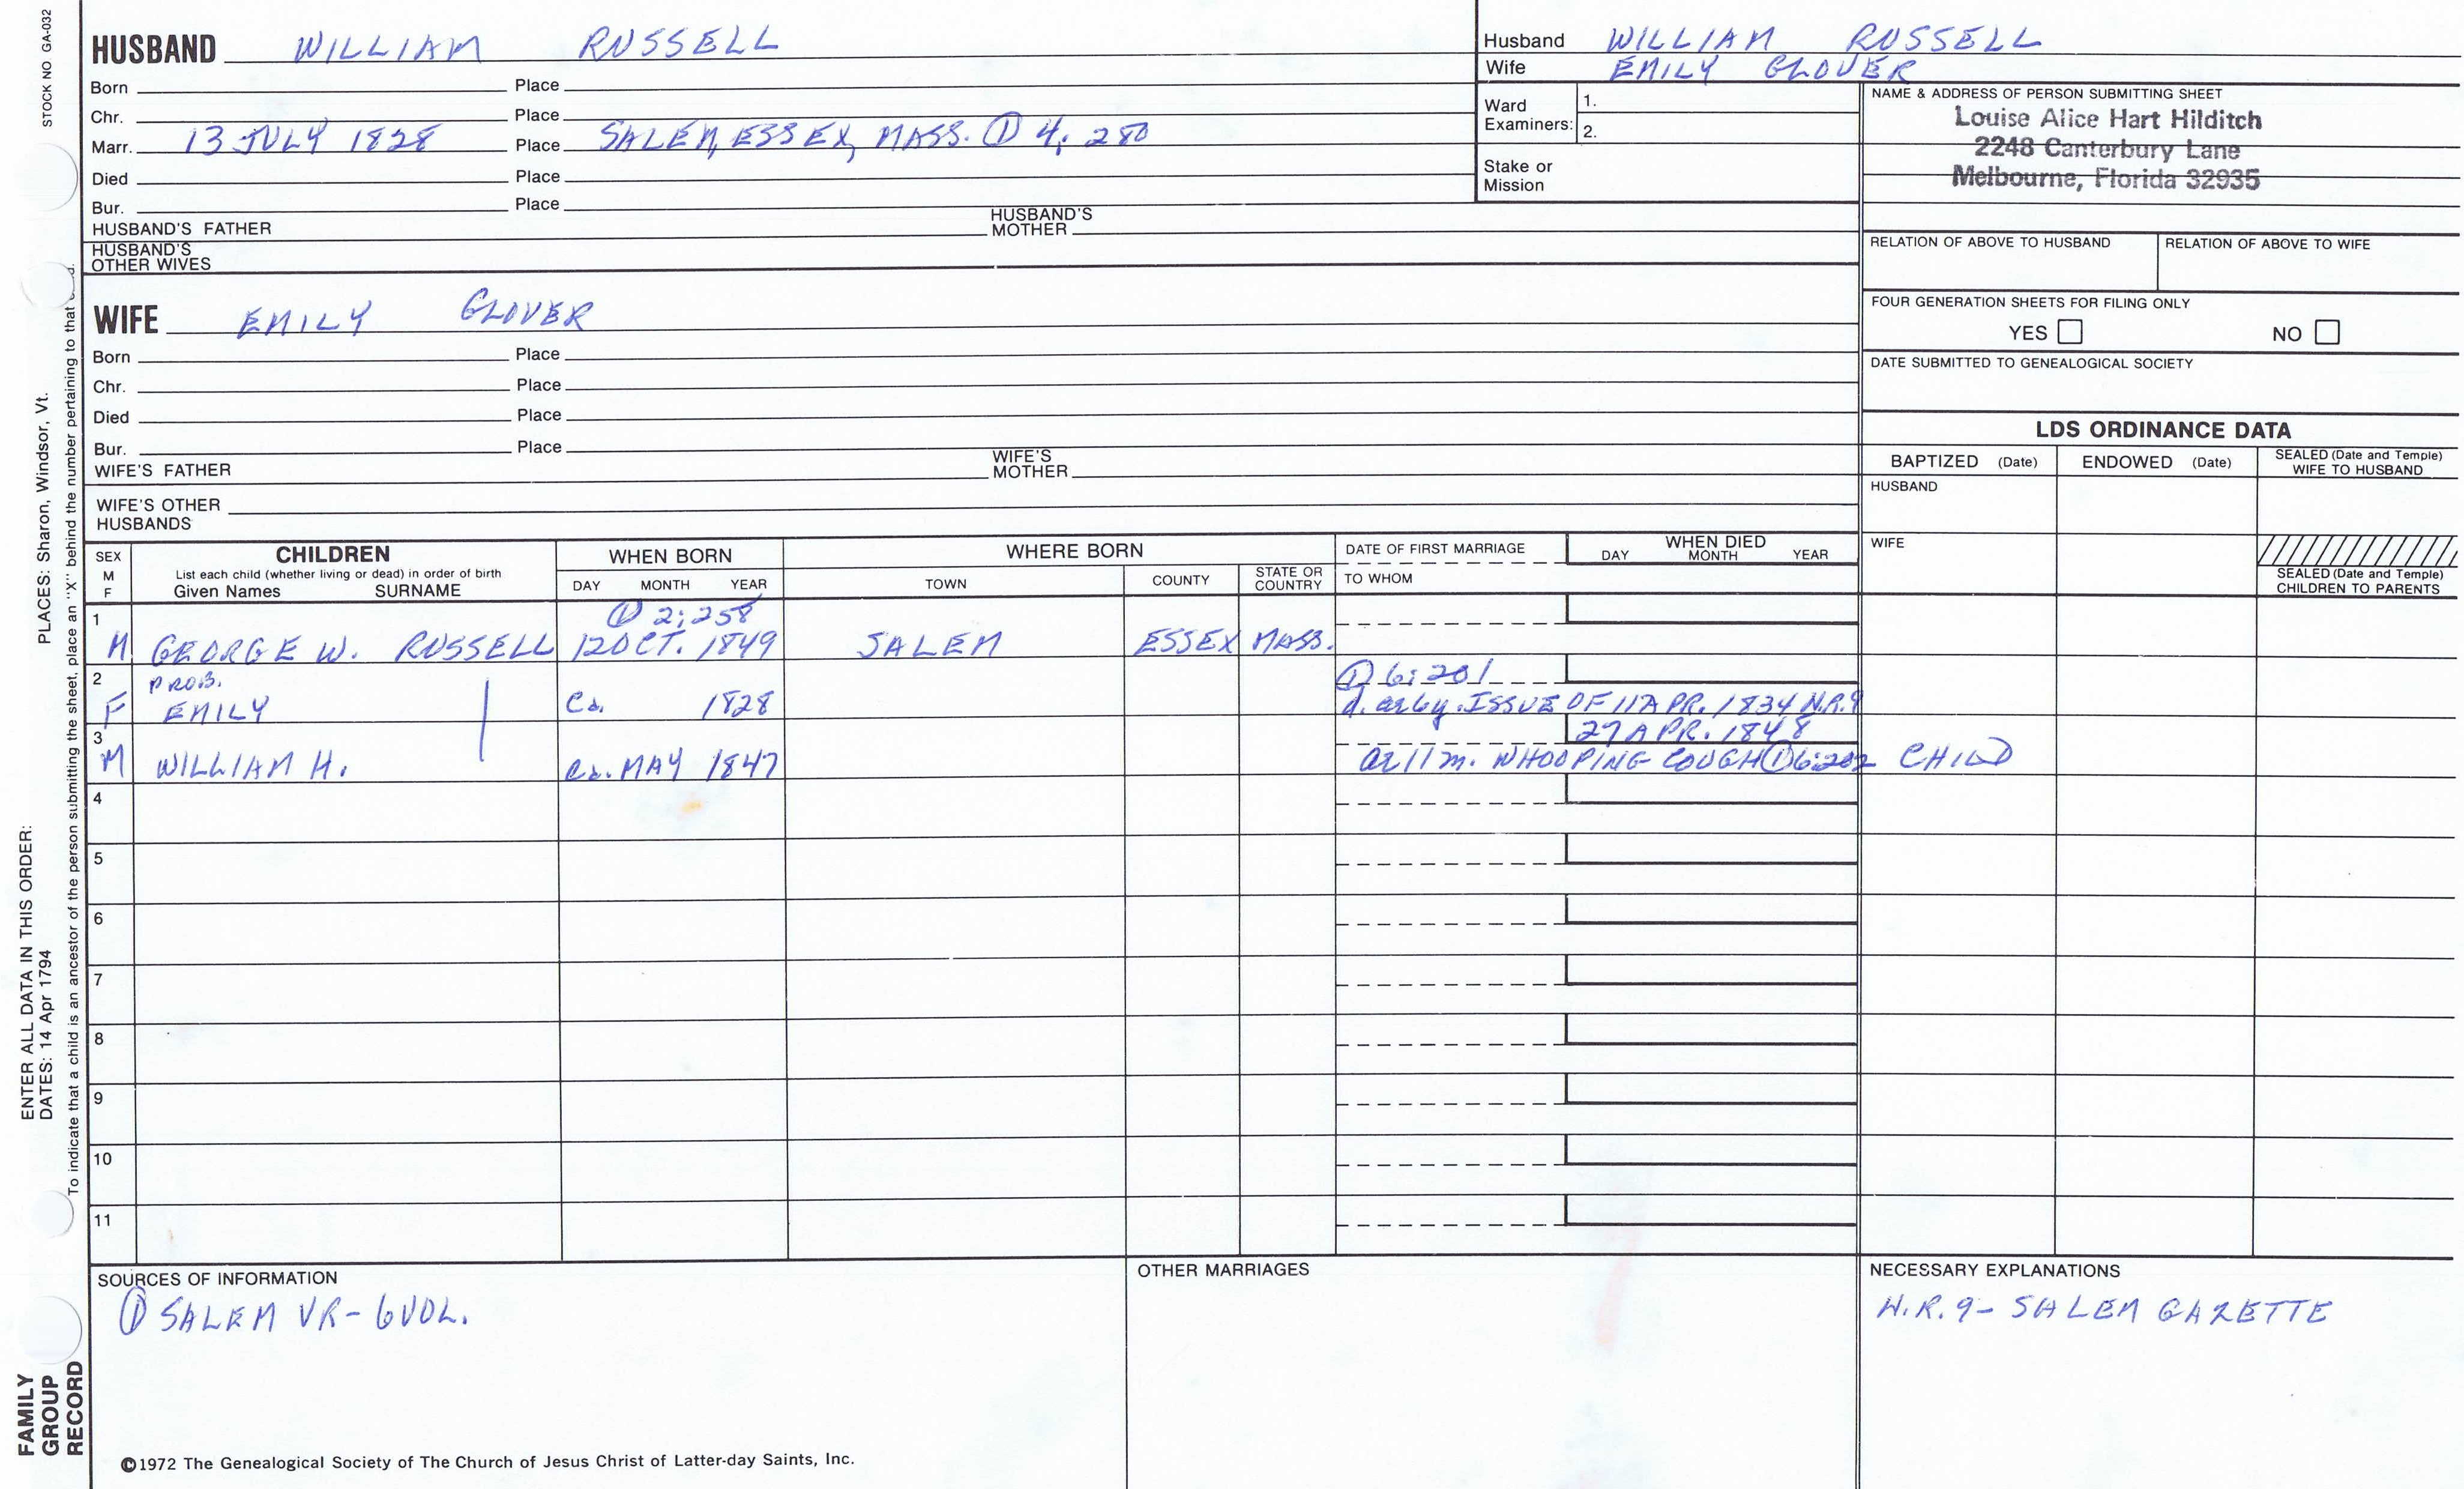 STOCK NO GA-032
HUSBAND WILLIAM RUSSELL
Born Place
Chr. Place
Marr. 13 JULY 1828 Place SALEM, ESSEX, MASS. ① 4: 280
Died Place
Bur. Place
HUSBAND'S FATHER HUSBAND'S MOTHER
HUSBAND'S OTHER WIVES
Husband WILLIAM RUSSELL
Wife EMILY GLOVER
Ward Examiners: 1.
2.
Stake or Mission
NAME & ADDRESS OF PERSON SUBMITTING SHEET
Louise Alice Hart Hilditch
2248 Canterbury Lane
Melbourne, Florida 32935
RELATION OF ABOVE TO HUSBAND RELATION OF ABOVE TO WIFE
FOUR GENERATION SHEETS FOR FILING ONLY
YES NO
DATE SUBMITTED TO GENEALOGICAL SOCIETY
WIFE EMILY GLOVER
Born Place
Chr. Place
Died Place
Bur. Place
WIFE'S FATHER WIFE'S MOTHER
WIFE'S OTHER HUSBANDS
LDS ORDINANCE DATA
BAPTIZED (Date) ENDOWED (Date) SEALED (Date and Temple) WIFE TO HUSBAND
HUSBAND
WIFE
SEALED (Date and Temple) CHILDREN TO PARENTS
SEX M F CHILDREN WHEN BORN WHERE BORN DATE OF FIRST MARRIAGE WHEN DIED
List each child (whether living or dead) in order of birth
Given Names SURNAME DAY MONTH YEAR TOWN COUNTY STATE OR COUNTRY TO WHOM DAY MONTH YEAR
① 2:258
1 M GEORGE W. RUSSELL 12 OCT. 1849 SALEM ESSEX MASS.
2 PROB. ① 6:201
F EMILY Ca. 1828 d. ae 6y. ISSUE OF 11 APR. 1834 N.R.9
3 27 APR. 1848
M WILLIAM H. Ca. MAY 1847 ae 11 m. WHOOPING COUGH ① 6:202 CHILD
4
5
6
7
8
9
10
11
SOURCES OF INFORMATION
① SALEM VR- 6 VOL.
OTHER MARRIAGES
NECESSARY EXPLANATIONS
N.R. 9- SALEM GAZETTE
©1972 The Genealogical Society of The Church of Jesus Christ of Latter-day Saints, Inc.
FAMILY GROUP RECORD
ENTER ALL DATA IN THIS ORDER:
DATES: 14 Apr 1794 PLACES: Sharon, Windsor, Vt.
To indicate that a child is an ancestor of the person submitting the sheet, place an "X" behind the number pertaining to that